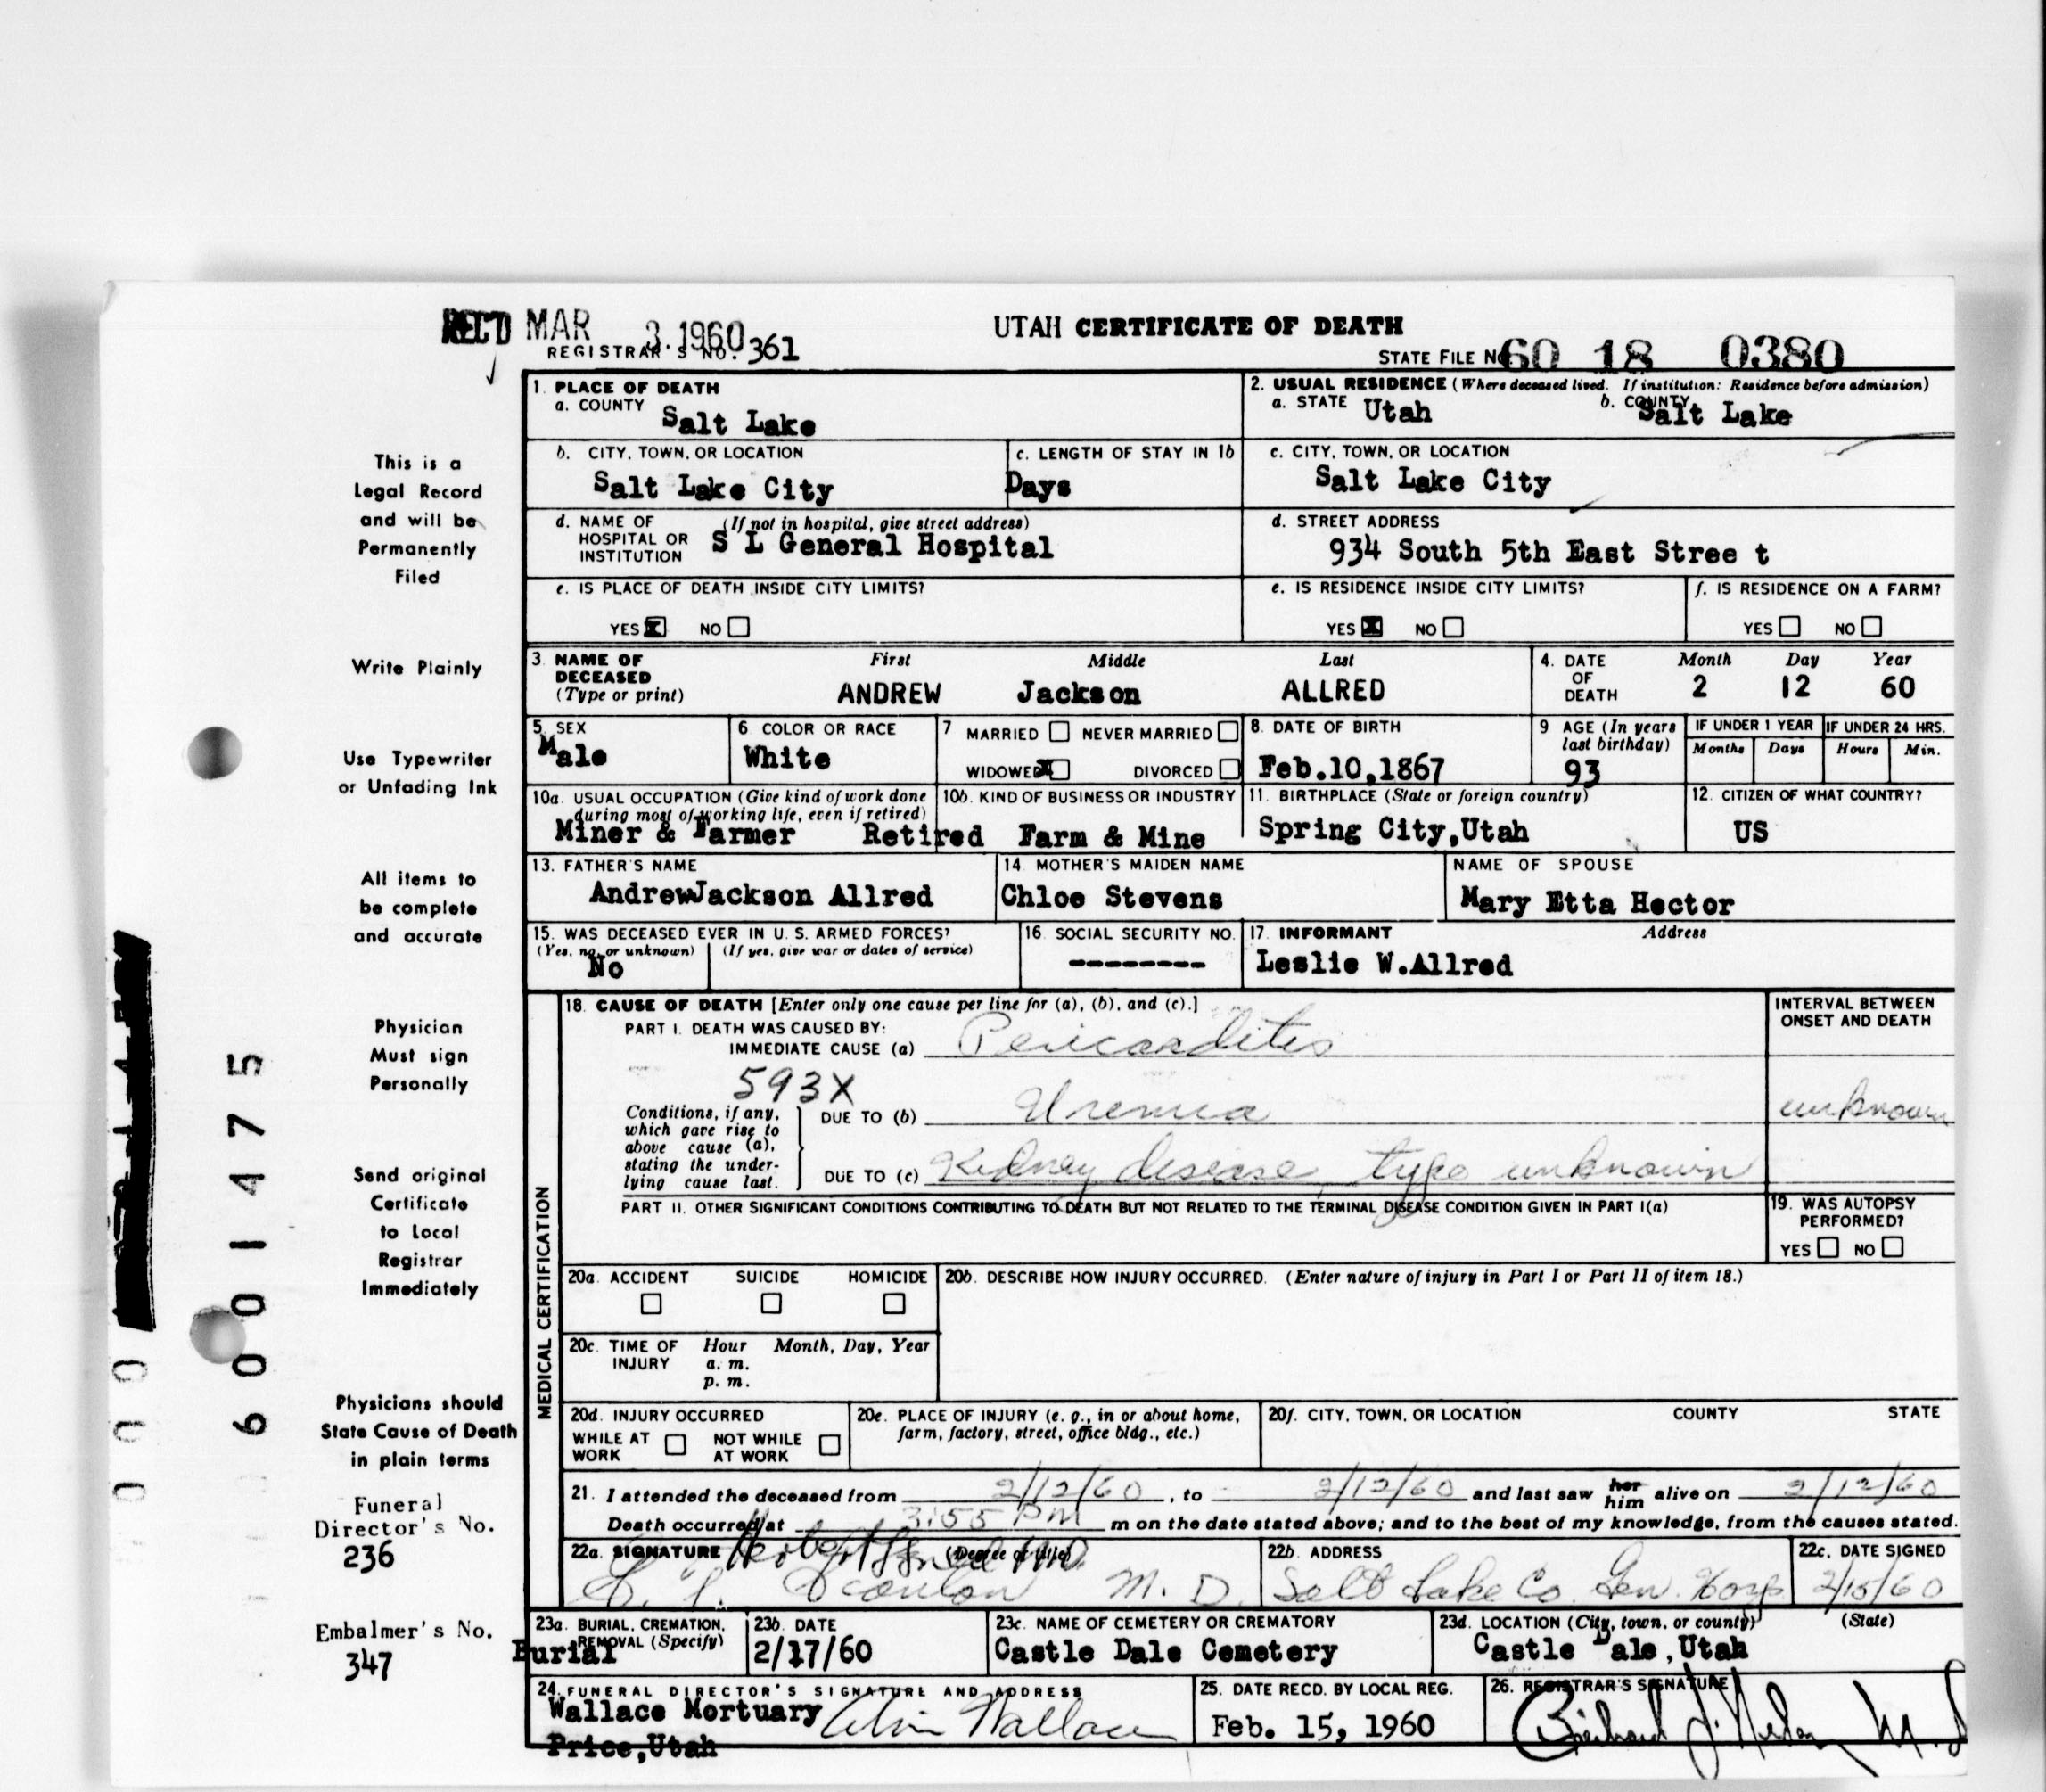 REC'D MAR 3. 1960
REGISTRAR'S NO. 361
UTAH CERTIFICATE OF DEATH
STATE FILE NO. 60 18 0380
1. PLACE OF DEATH
a. COUNTY Salt Lake
2. USUAL RESIDENCE (Where deceased lived. If institution: Residence before admission)
a. STATE Utah b. COUNTY Salt Lake
b. CITY, TOWN, OR LOCATION
Salt Lake City
c. LENGTH OF STAY IN 1b
Days
c. CITY, TOWN, OR LOCATION
Salt Lake City
d. NAME OF HOSPITAL OR INSTITUTION (If not in hospital, give street address)
S L General Hospital
d. STREET ADDRESS
934 South 5th East Stree t
e. IS PLACE OF DEATH INSIDE CITY LIMITS?
YES X NO
e. IS RESIDENCE INSIDE CITY LIMITS?
YES X NO
f. IS RESIDENCE ON A FARM?
YES NO
3. NAME OF DECEASED (Type or print)
First Middle Last
ANDREW Jackson ALLRED
4. DATE OF DEATH
Month Day Year
2 12 60
5. SEX
Male
6. COLOR OR RACE
White
7 MARRIED NEVER MARRIED
WIDOWED X DIVORCED
8. DATE OF BIRTH
Feb.10,1867
9 AGE (In years last birthday)
93
IF UNDER 1 YEAR
Months Days
IF UNDER 24 HRS.
Hours Min.
10a. USUAL OCCUPATION (Give kind of work done during most of working life, even if retired)
Miner & Farmer Retired
10b. KIND OF BUSINESS OR INDUSTRY
Farm & Mine
11. BIRTHPLACE (State or foreign country)
Spring City,Utah
12. CITIZEN OF WHAT COUNTRY?
US
13. FATHER'S NAME
AndrewJackson Allred
14. MOTHER'S MAIDEN NAME
Chloe Stevens
NAME OF SPOUSE
Mary Etta Hector
15. WAS DECEASED EVER IN U. S. ARMED FORCES?
(Yes, no, or unknown) (If yes, give war or dates of service)
No
16. SOCIAL SECURITY NO.
--------
17. INFORMANT Address
Leslie W.Allred
MEDICAL CERTIFICATION
18. CAUSE OF DEATH [Enter only one cause per line for (a), (b), and (c).]
PART I. DEATH WAS CAUSED BY:
IMMEDIATE CAUSE (a) Pericarditis
593X
Conditions, if any, which gave rise to above cause (a), stating the underlying cause last.
DUE TO (b) Uremia
DUE TO (c) Kidney disease, type unknown
INTERVAL BETWEEN ONSET AND DEATH
unknown
PART II. OTHER SIGNIFICANT CONDITIONS CONTRIBUTING TO DEATH BUT NOT RELATED TO THE TERMINAL DISEASE CONDITION GIVEN IN PART I(a)
19. WAS AUTOPSY PERFORMED?
YES NO
20a. ACCIDENT SUICIDE HOMICIDE
20b. DESCRIBE HOW INJURY OCCURRED. (Enter nature of injury in Part I or Part II of item 18.)
20c. TIME OF INJURY Hour Month, Day, Year
a. m.
p. m.
20d. INJURY OCCURRED
WHILE AT WORK NOT WHILE AT WORK
20e. PLACE OF INJURY (e. g., in or about home, farm, factory, street, office bldg., etc.)
20f. CITY, TOWN, OR LOCATION COUNTY STATE
21. I attended the deceased from 2/12/60, to 2/12/60 and last saw her him alive on 2/12/60
Death occurred at 3:55 Pm m on the date stated above; and to the best of my knowledge, from the causes stated.
22a. SIGNATURE (Degree or title)
M. D.
22b. ADDRESS
Salt Lake Co. Gen. Hosp
22c. DATE SIGNED
2/15/60
23a. BURIAL, CREMATION, REMOVAL (Specify)
Burial
23b. DATE
2/17/60
23c. NAME OF CEMETERY OR CREMATORY
Castle Dale Cemetery
23d. LOCATION (City, town, or county) (State)
Castle Dale,Utah
24. FUNERAL DIRECTOR'S SIGNATURE AND ADDRESS
Wallace Mortuary Alvin Wallace
Price,Utah
25. DATE RECD. BY LOCAL REG.
Feb. 15, 1960
26. REGISTRAR'S SIGNATURE
This is a
Legal Record
and will be
Permanently
Filed
Write Plainly
Use Typewriter
or Unfading Ink
All items to
be complete
and accurate
Physician
Must sign
Personally
Send original
Certificate
to Local
Registrar
Immediately
Physicians should
State Cause of Death
in plain terms
Funeral
Director's No.
236
Embalmer's No.
347
6001475
000